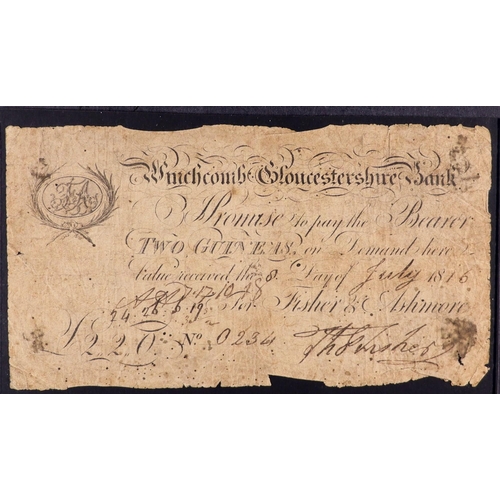 Winchcomb Gloucestershire Bank
I Promise to pay the Bearer
TWO GUINEAS, on Demand here
Value received the 8 Day of July 1816
For Fisher & Ashmore
£2 2 0 No 0234
Thos Fisher